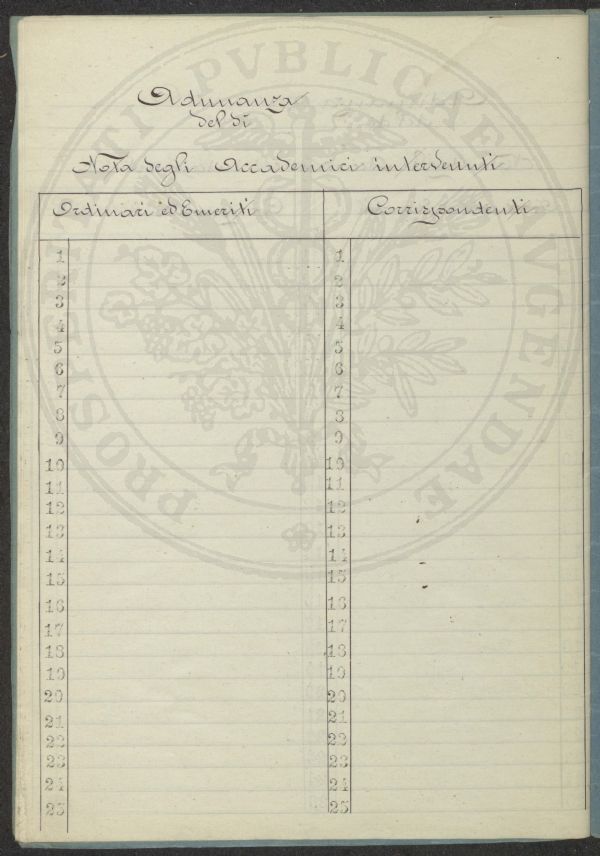 Adunanza
del dì
Nota degli Accademici intervenuti
Ordinari ed Emeriti
Corrispondenti
1 1
2 2
3 3
4 4
5 5
6 6
7 7
8 8
9 9
10 10
11 11
12 12
13 13
14 14
15 15
16 16
17 17
18 18
19 19
20 20
21 21
22 22
23 23
24 24
25 25
PROSPERITATI PVBLICAE AVGENDAE